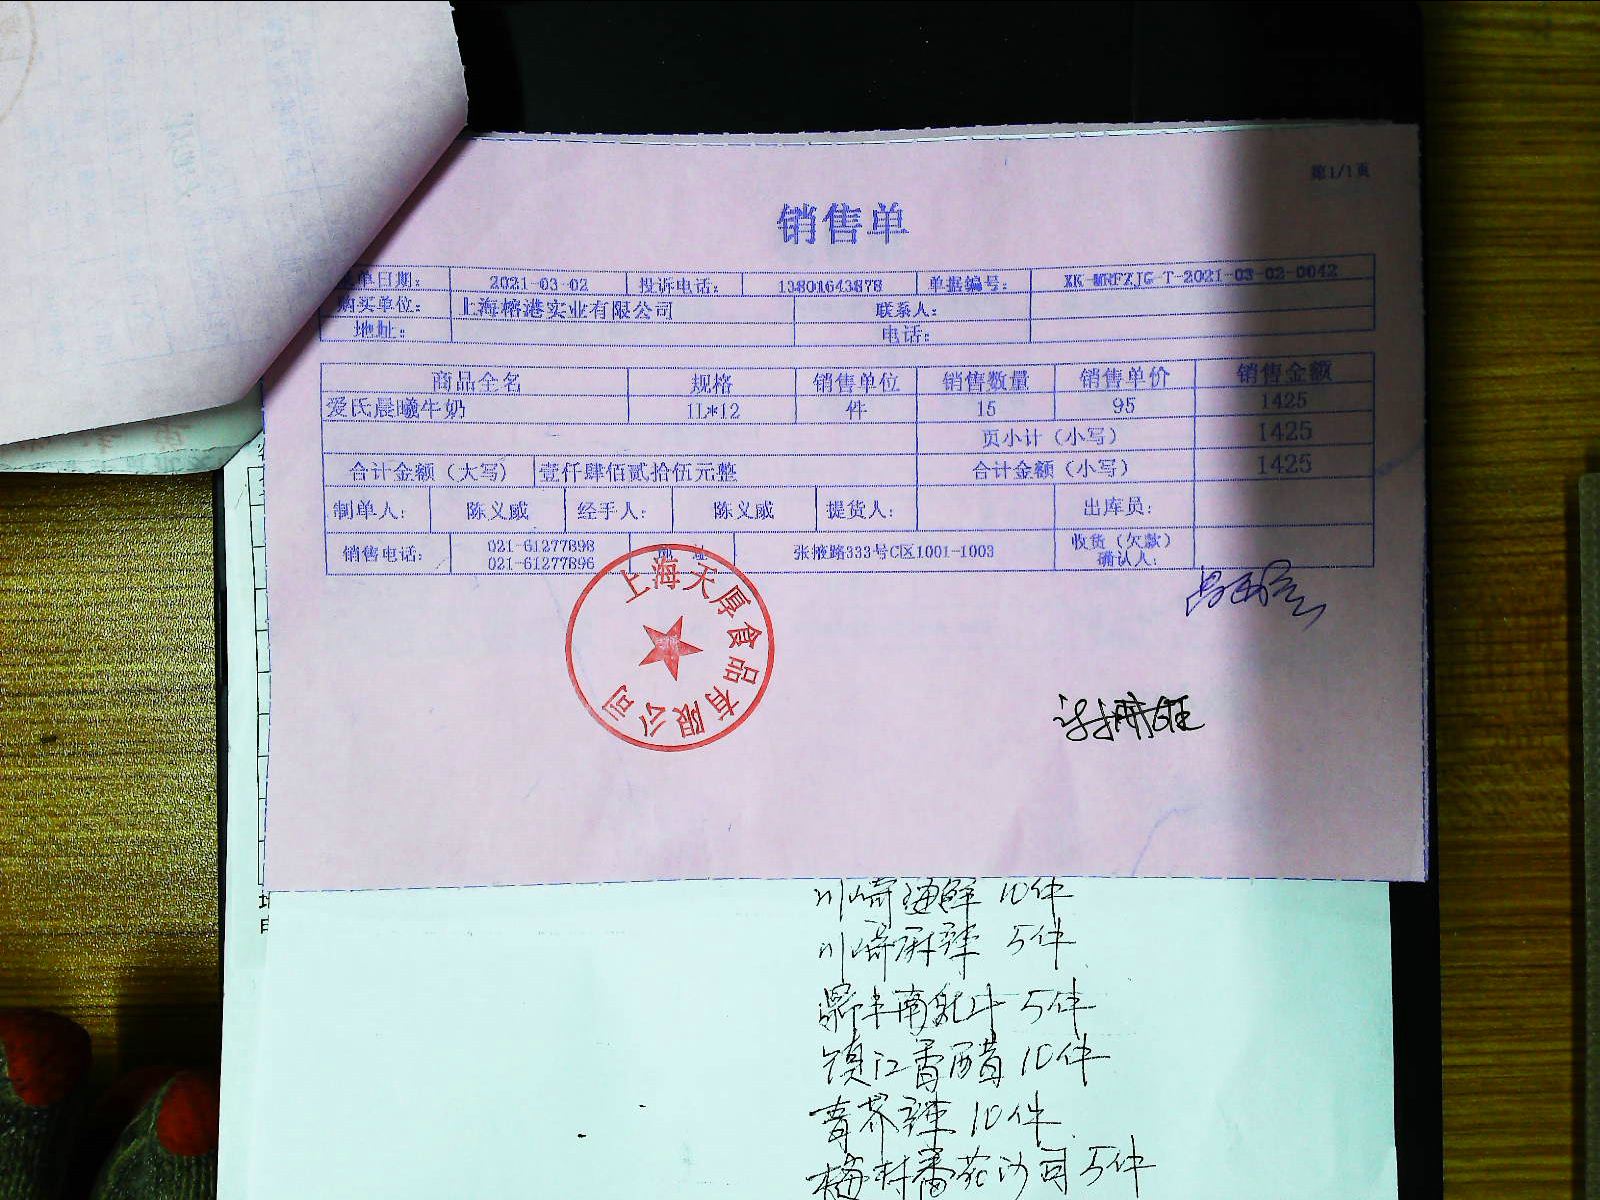 第1/1页
销售单
单日期： 2021-03-02 投诉电话： 13801643878 单据编号： XK-MRFZJG-T-2021-03-02-0042
购买单位： 上海榕港实业有限公司 联系人：
地址： 电话：
商品全名 规格 销售单位 销售数量 销售单价 销售金额
爱氏晨曦牛奶 1L*12 件 15 95 1425
页小计（小写） 1425
合计金额（大写） 壹仟肆佰贰拾伍元整 合计金额（小写） 1425
制单人： 陈义威 经手人： 陈义威 提货人： 出库员：
销售电话： 021-61277898 021-61277896 地址 张掖路333号C区1001-1003 收货（欠款）确认人：
上海天厚食品有限公司
川崎海鲜 10件
川崎麻辣 5件
鼎丰南乳汁 5件
镇江香醋 10件
青芥辣 10件
梅村番茄沙司 5件